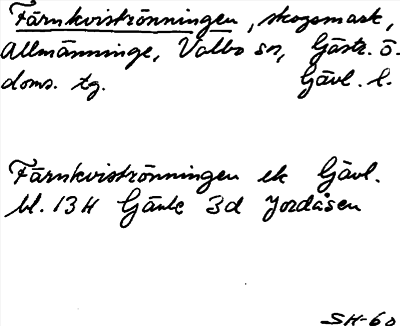 Färnkviströnningen, skogsmark,
Allmänninge, Valbo sn, Gästr. ö.
doms. tg. Gävl. l.
Färnkviströnningen ek Gävl.
bl. 13H Gävle 3d Jordåsen
SH-60